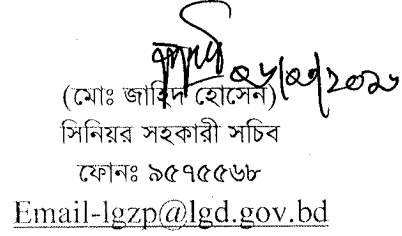 (মোঃ জাহিদ হোসেন)
সিনিয়র সহকারী সচিব
ফোনঃ ৯৫৭৫৫৬৮
Email-lgzp@lgd.gov.bd